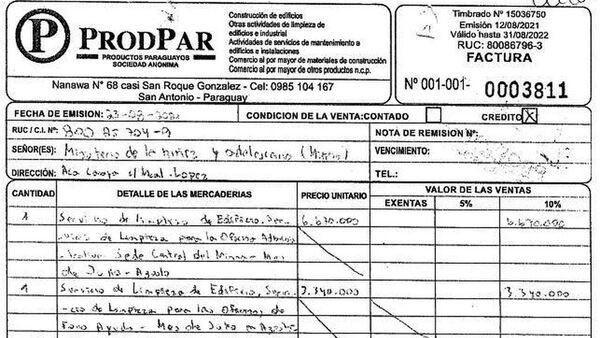 PRODPAR
PRODUCTOS PARAGUAYOS
SOCIEDAD ANONIMA
Construcción de edificios
Otras actividades de limpieza de
edificios e industrial
Actividades de servicios de mantenimiento a
edificios e instalaciones
Comercio al por mayor de materiales de construcción
Comercio al por mayor de otros productos n.c.p.
Nanawa N° 68 casi San Roque Gonzalez - Cel: 0985 104 167
San Antonio - Paraguay
Timbrado N° 15036750
Emisión 12/08/2021
Válido hasta 31/08/2022
RUC: 80086796-3
FACTURA
N° 001-001- 0003811
FECHA DE EMISION:
CONDICION DE LA VENTA: CONTADO CREDITO X
RUC / C.I. N°:
NOTA DE REMISION N°:
SEÑOR(ES): Ministerio de la niñez y adolescencia
VENCIMIENTO:
DIRECCIÓN: Lopez
TEL.:
CANTIDAD DETALLE DE LAS MERCADERIAS PRECIO UNITARIO VALOR DE LAS VENTAS
EXENTAS 5% 10%
1 Servicio de Limpieza de Edificio, 6.670.000 6.670.000
de Limpieza para la Oficina
Sede Central del Mes
de Julio - Agosto
1 Servicio de Limpieza de Edificio, 3.340.000 3.340.000
de Limpieza para las Oficinas de
Fono Ayuda - Mes de Julio a Agosto